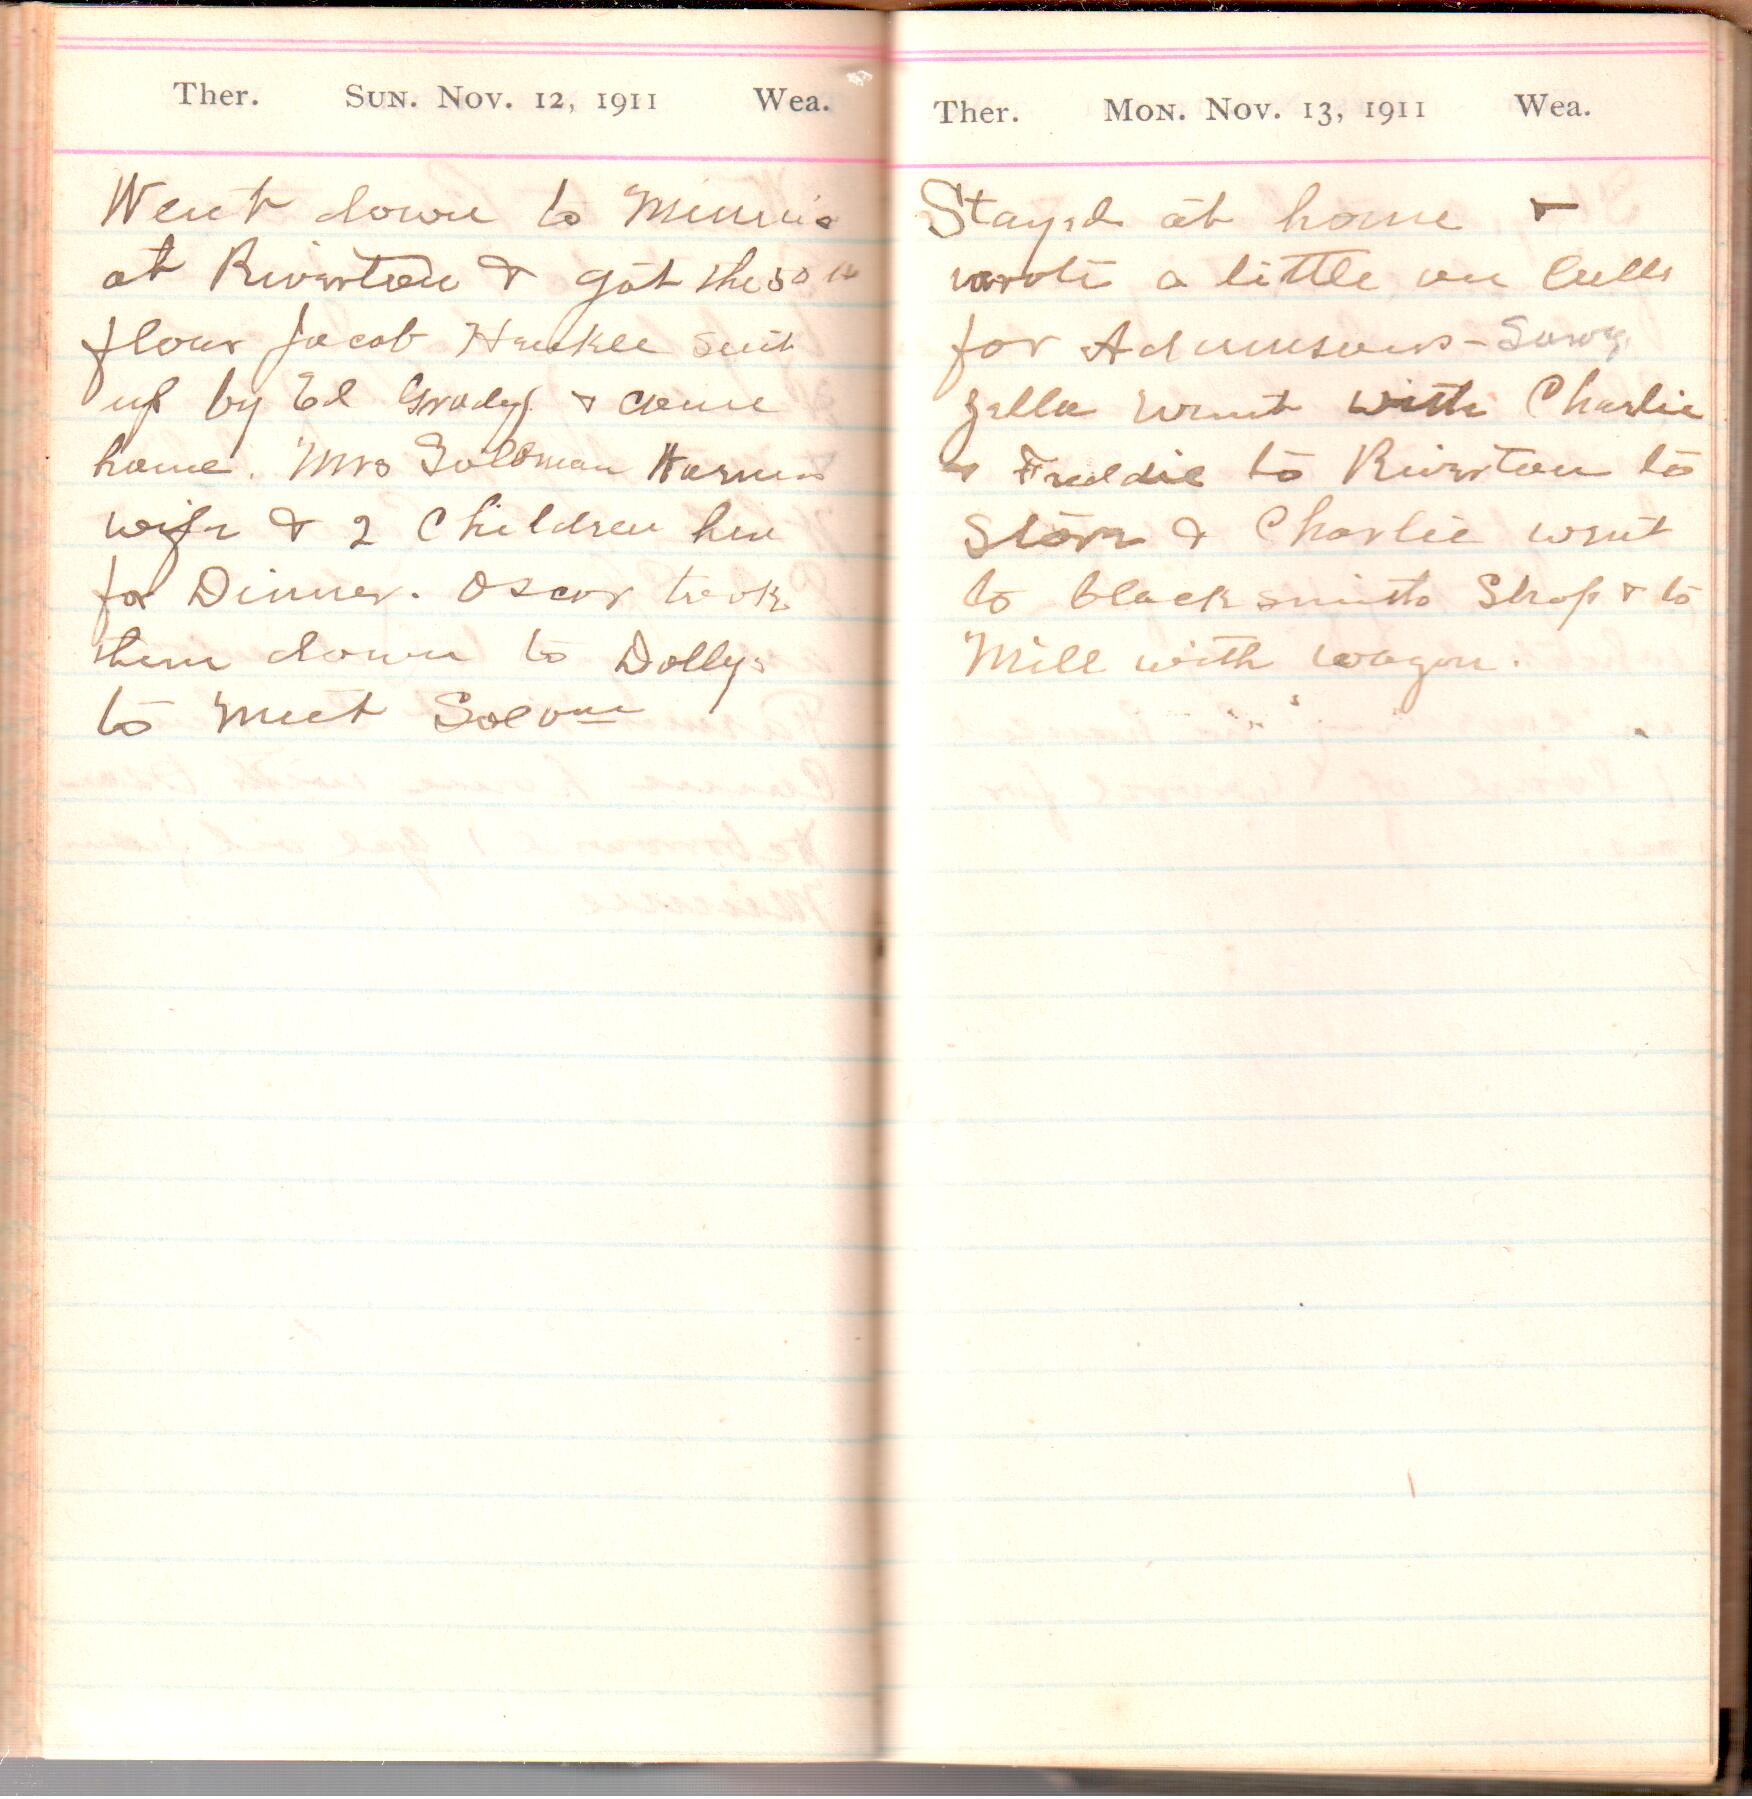 Ther. Sun. Nov. 12, 1911 Wea.
Went down to Minnie
at Riverton & got the 50 #
flour Jacob Henkle sent
up by Ed Grady & came
home. Mrs Solomon
wife & 2 Children here
for Dinner. Oscar took
them down to Dollys
to meet Solomon
Ther. Mon. Nov. 13, 1911 Wea.
Stayed at home &
wrote a little on bills
for Adamsons -
Zella went with Charlie
& Freddie to Riverton to
Store & Charlie went
to blacksmith Shop & to
Mill with wagon.